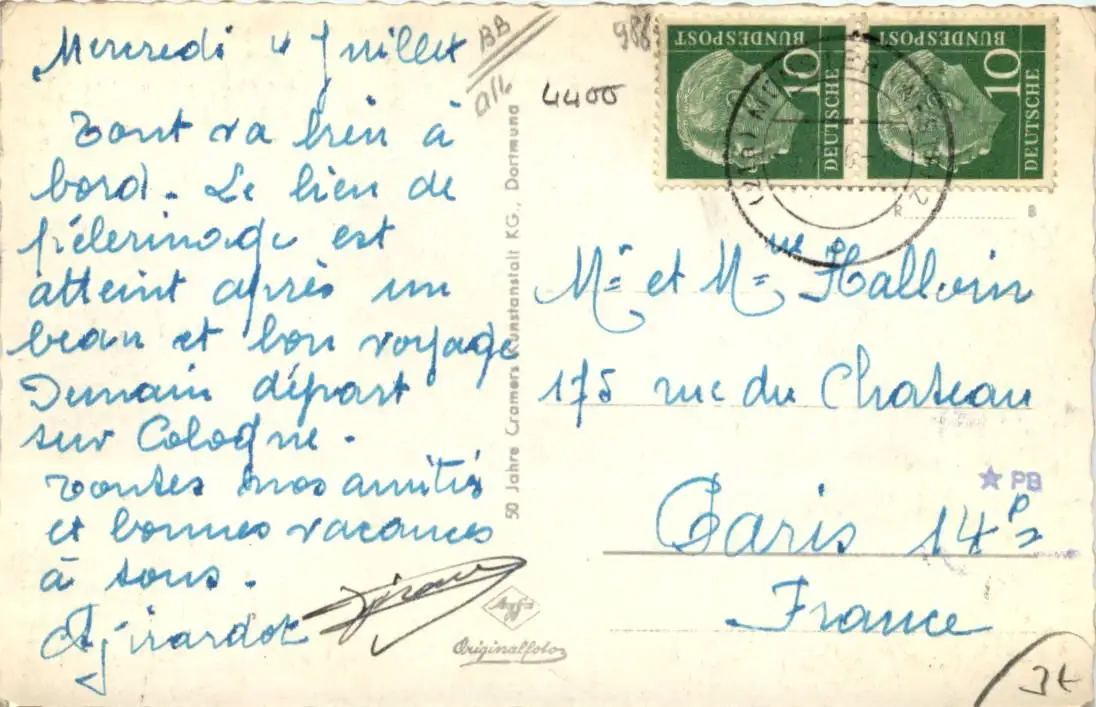 Mercredi 4 Juillet
Tout va bien à
bord. Le lieu de
pélerinage est
atteint après un
beau et bon voyage
Demain départ
sur Cologne.
Toutes nos amitiés
et bonnes vacances
à tous.
Girardot
BB
a16
4400
988
DEUTSCHE
BUNDESPOST
10
DEUTSCHE
BUNDESPOST
10
R B
Mr et Mme Hallvin
175 rue du Chateau
Paris 14e
France
PB
50 Jahre Cramers Kunstanstalt KG., Dortmund
Agfa
Originalfoto